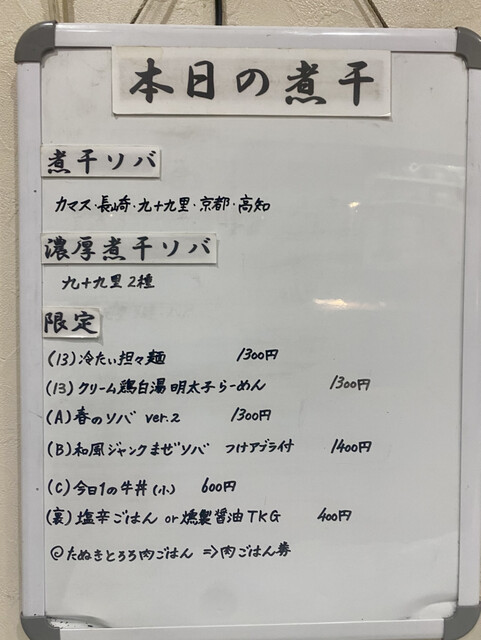 本日の煮干
煮干ソバ
カマス・長崎・九十九里・京都・高知
濃厚煮干ソバ
九十九里2種
限定
(13)冷たい担々麺 1300円
(13)クリーム鶏白湯明太子らーめん 1300円
(A)春のソバ ver.2 1300円
(B)和風ジャンクまぜソバ つけアブラ付 1400円
(C)今日1の牛丼(小) 600円
(裏)塩辛ごはん or燻製醤油TKG 400円
@たぬきとろろ肉ごはん ⇒肉ごはん券